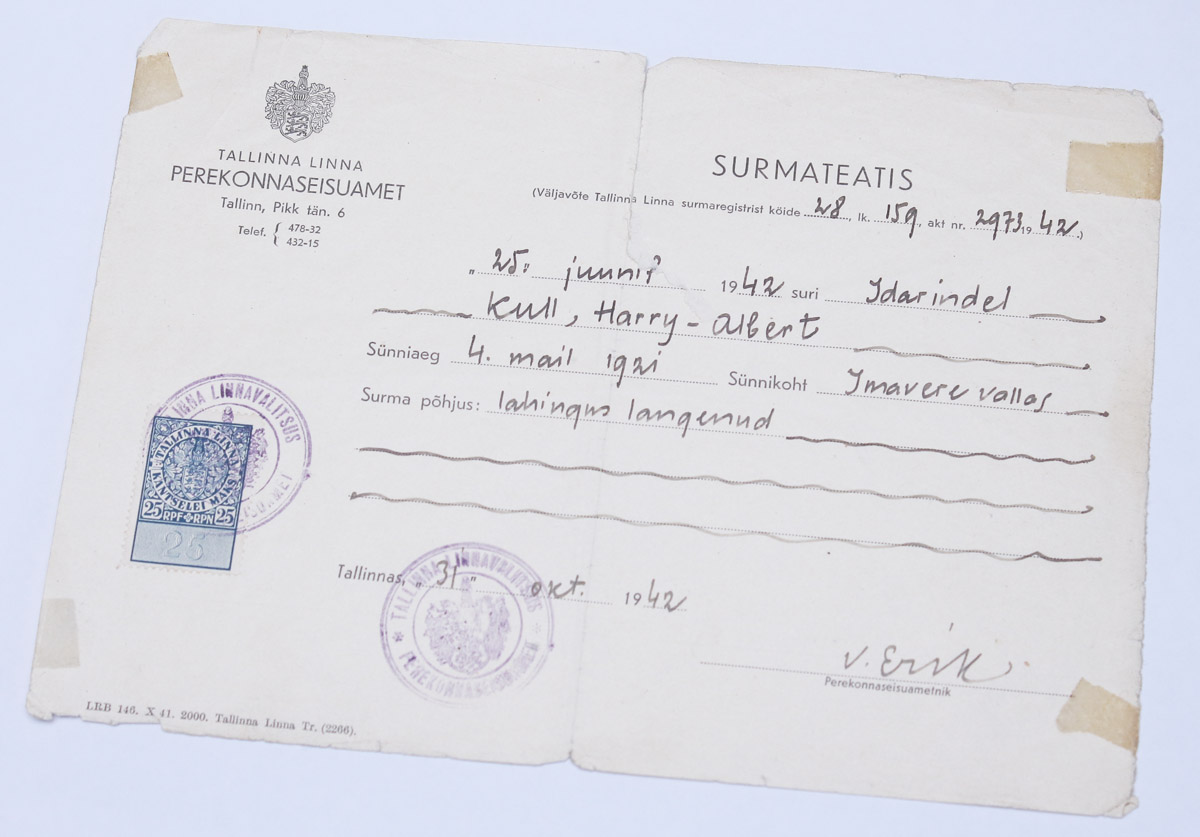 TALLINNA LINNA
PEREKONNASEISUAMET
Tallinn, Pikk tän. 6
Telef. { 478-32
432-15
SURMATEATIS
(Väljavõte Tallinna Linna surmaregistrist köide 28, lk. 159, akt nr. 2973 1942.)
„25." juunil 1942 suri Idarindel
Kull, Harry-Albert
Sünniaeg 4. mail 1921 Sünnikoht Imavere vallas
Surma põhjus: lahingus langenud
TALLINNA LINNAVALITSUS
TALLINNA LINNA
KANTSELEI MAKS
25 RPF RPN 25
25
Tallinnas, „31" okt. 1942
TALLINNA LINNAVALITSUS
PEREKONNASEISUAMET
v. Erik
Perekonnaseisuametnik
LRB 146. X 41. 2000. Tallinna Linna Tr. (2266).